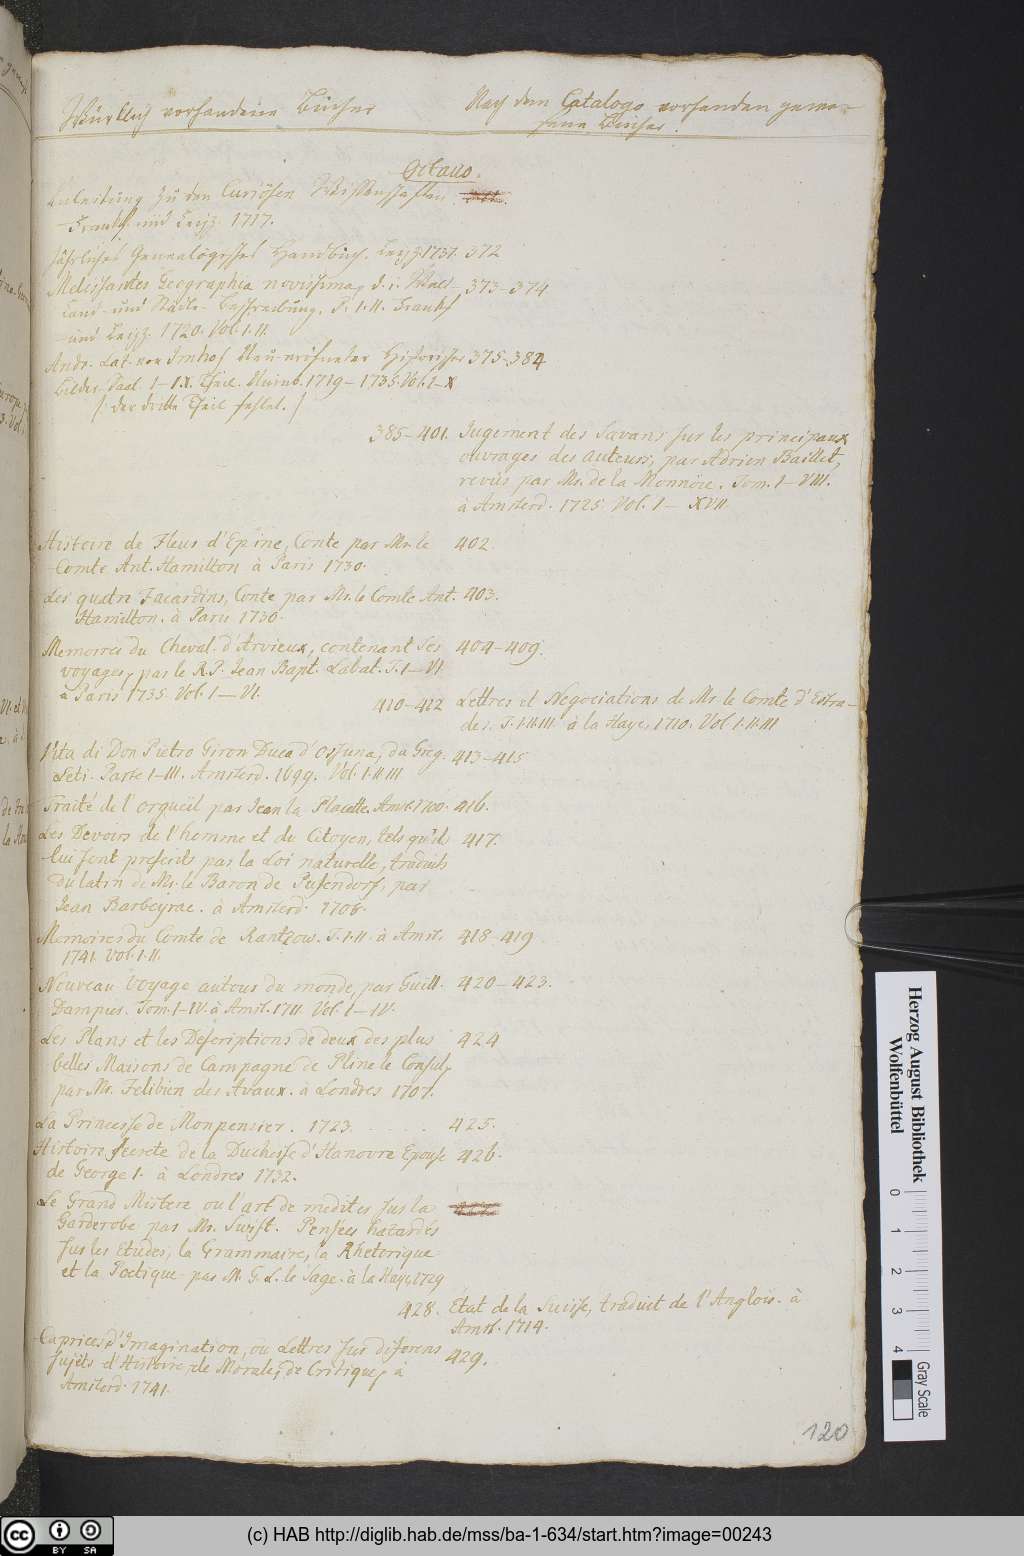 Würklich vorhandene Bücher
Nach dem Catalogo vorhanden gewe-
sene Bücher.
Octavo.
Anleitung zu den Curiösen Wissenschafften
Franckf. und Leipz. 1717.
Jährliches Genealogisches Handbuch. Leipz. 1737. 372
Melissantes Geographia novissima, d. i. Welt- 373-374
Land- und Städte- Beschreibung. P. I. II. Franckf
und Leipz. 1720. Vol. I. II.
Andr. Laz. von Imhof Neu-eröfneter Historischer 375-384
Bilder-Saal. I-IX. Theil. Nürnb. 1719-1735. Vol. I-X
(der dritte Theil fehlet.)
385-401. Jugement des Savans sur les principaux
ouvrages des Auteurs, par Adrien Baillet,
revûs par Mr. de la Monnoie. Tom. I-VIII.
à Amsterd. 1725. Vol. I-XVII
Histoire de Fleur d'Epine, Conte par Mr. le 402.
Comte Ant. Hamilton à Paris 1730.
Les quatre Facardins, Conte par Mr. le Comte Ant. 403.
Hamilton. à Paris 1730.
Memoires du Cheval. d'Arvieux, contenant ses 404-409.
voyages, par le R. P. Jean Bapt. Labat. T. I-VI
à Paris 1735. Vol. I-VI.
410-412 Lettres et Negociations de Mr. le Comte d'Estra-
des. T. I. II. III. à la Haye, 1710. Vol. I. II. III
Vita di Don Pietro Giron Duca d'Ossuna, da Greg. 413-415
Leti. Parte I-III. Amsterd. 1699. Vol. I. II. III
Traité de l'orgueil par Jean la Placette. Amst. 1700. 416.
Les Devoirs de l'homme et du Citoyen, tels qu'ils 417.
lui sont prescrits par la Loi naturelle, traduits
du latin de Mr. le Baron de Pufendorf, par
Jean Barbeyrac. à Amsterd. 1706.
Memoires du Comte de Rantzow. T. I. II. à Amst. 418-419
1741. Vol. I. II.
Nouveau Voyage autour du monde, par Guill. 420-423.
Dampier. Tom. I-IV. à Amst. 1711. Vol. I-IV.
Les Plans et les Descriptions de deux des plus 424
belles Maisons de Campagne de Pline le Consul,
par Mr. Felibien des Avaux. à Londres 1707.
La Princesse de Monpensier. 1723. 425.
Histoire secrete de la Duchesse d'Hanovre Epouse 426.
de George I. à Londres 1732.
Le Grand Mistere ou l'art de mediter sur la
Garderobe par Mr. Swift. Pensées hazardés
sur les Etudes, la Grammaire, la Rhetorique
et la Poëtique par M. G. L. le Sage. à la Haye, 1729
428. Etat de la Suisse, traduit de l'Anglois. à
Amst. 1714.
Caprices d'Imagination, ou Lettres sur diferens 429.
sujets d'Histoire, de Morale, de Critique, à
Amsterd. 1741.
120
Herzog August Bibliothek
Wolfenbüttel
0 1 2 3 4
Gray Scale
cc BY SA
(c) HAB http://diglib.hab.de/mss/ba-1-634/start.htm?image=00243